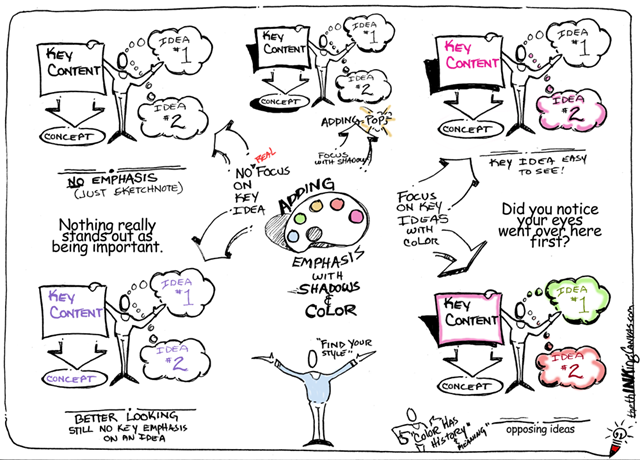 KEY
CONTENT
IDEA
#1
IDEA
#2
CONCEPT
NO EMPHASIS
(JUST SKETCHNOTE)
Nothing really
stands out as
being important.
KEY
CONTENT
IDEA
#1
IDEA
#2
CONCEPT
ADDING "POPS"
FOCUS
WITH SHADOW
REAL
NO FOCUS
ON
KEY
IDEA
KEY
CONTENT
IDEA
#1
IDEA
#2
CONCEPT
KEY IDEA EASY
TO SEE!
FOCUS
ON KEY
IDEAS
WITH
COLOR
Did you notice
your eyes
went over here
first?
ADDING
EMPHASIS
WITH
SHADOWS
&
COLOR
KEY
CONTENT
IDEA
#1
IDEA
#2
CONCEPT
BETTER LOOKING
STILL NO KEY EMPHASIS
ON AN IDEA
"FIND YOUR
STYLE"
KEY
CONTENT
IDEA
#1
IDEA
#2
CONCEPT
"COLOR HAS
HISTORY &
MEANING"
opposing ideas